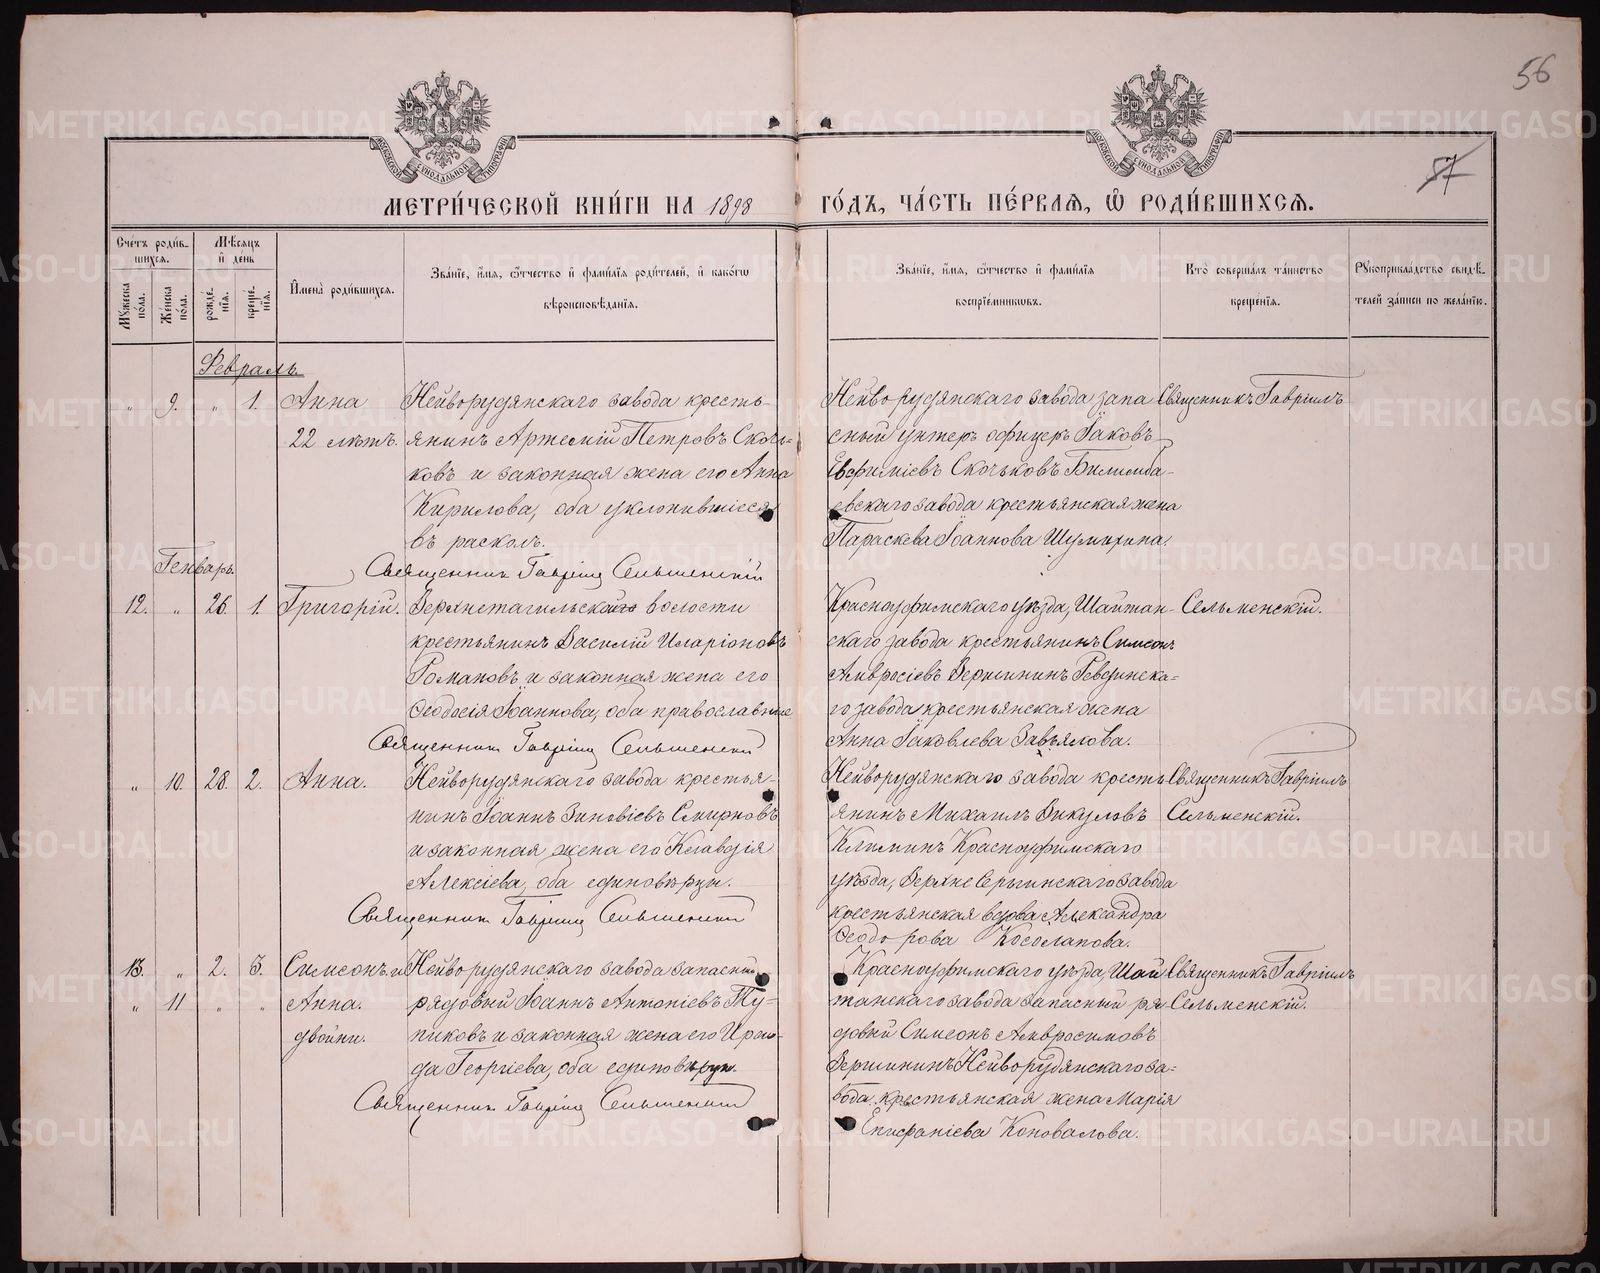 56
57
МЕТРИ́ЧЕСКОЙ КНИ́ГИ НА 1898 ГО́ДЪ, ЧА́СТЬ ПЕ́РВАЯ, Ѡ РОДИ́ВШИХСЯ.
Счетъ роди́в-
шихся.
Мѣ́сяцъ
и̂ де́нь
Му́жеска по́ла.
Же́нска по́ла.
рожде́-
нїя.
креще́-
нїя.
И̂мена̀ роди́вшихся.
Зва́нїе, и̂́мя, ѻ́тчество и̂ фами́лїя роди́телей, и̂ како́гѡ
вѣроисповѣ́данїя.
Зва́нїе, и̂́мя, ѻ́тчество и̂ фами́лїя
воспрїе́мниковъ.
Кто̀ соверша́лъ та́инство
креще́нїя.
Рукоприкла́дство свидѣ́-
телей за́писи по жела́нїю.
Февраль.
" 9. " 1. Анна
22 лѣтъ.
Нейворудянскаго завода кресть-
янинъ Артемій Петровъ Скочь-
ковъ и законная жена его Анна
Кирилова, оба уклонившіеся
въ расколъ.
Священник Гавріил Сельменскій
Нейворудянскаго завода запа
сный унтеръ офицеръ Іаковъ
Евфиміевъ Скочьковъ Билимба-
евскаго завода крестьянская жена
Параскева Іоаннова Шумихина.
Священникъ Гавріилъ
Сельменскій.
Генварь.
12. " 26 1. Григорій.
Верхнетагильской волости
крестьянинъ Василій Иларіоновъ
Романовъ и законная жена его
Ѳеодосія Іоаннова, оба православные
Священник Гавріил Сельменскій
Красноуфимскаго уѣзда, Шайтан-
скаго завода крестьянинъ Симеонъ
Амвросіевъ Вершининъ Ревдинска-
го завода крестьянская жена
Анна Іаковлева Завьялова.
" 10. 28. 2. Анна.
Нейворудянскаго завода крестья-
нинъ Іоаннъ Зиновіевъ Смирновъ
и законная жена его Клавдія
Алексіева, оба единовѣрцы.
Священник Гавріил Сельменскій
Нейворудянскаго завода кресть
янинъ Михаилъ Викуловъ
Климинъ Красноуфимскаго
уѣзда, Верхне Сергинскаго завода
крестьянская вдова Александра
Ѳеодорова Косолапова.
Священникъ Гавріилъ
Сельменскій.
13. " 2. 3. Симеонъ и
" 11 " " Анна.
двойни.
Нейворудянскаго завода запасный
рядовый Іоаннъ Антоніевъ Ту-
пиковъ и законная жена его Ираи-
да Георгіева, оба единовѣрцы.
Священник Гавріил Сельменскій
Красноуфимскаго уѣзда, Шай
танскаго завода запасный ря
довый Симеонъ Амвросимовъ
Вершининъ Нейворудянскаго за-
вода, крестьянская жена Марія
Епифаніева Коновалова.
Священникъ Гавріилъ
Сельменскій.
METRIKI.GASO-URAL.RU